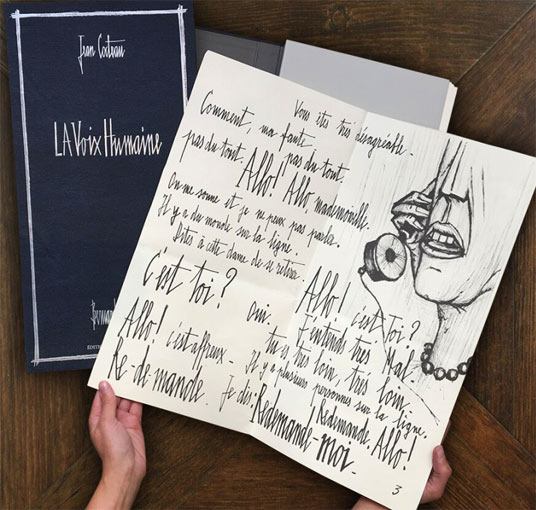 Jean Cocteau
LA Voix Humaine
Vous êtes très désagréable.
Comment, ma faute,
pas du tout, pas du tout.
Allo! Allo mademoiselle.
On me sonne et je ne peux pas parler.
Il y a du monde sur la ligne.
Dites à cette dame de se retirer.
C'est toi?
Allo! c'est affreux_
Re-de-mande.
Allo! c'est Toi?
oui, J'entends très Mal.
tu es très loin, très loin,
Il y a plusieurs personnes sur la ligne.
Redemande. Allo!
Je dis:
Redemande-moi.
3